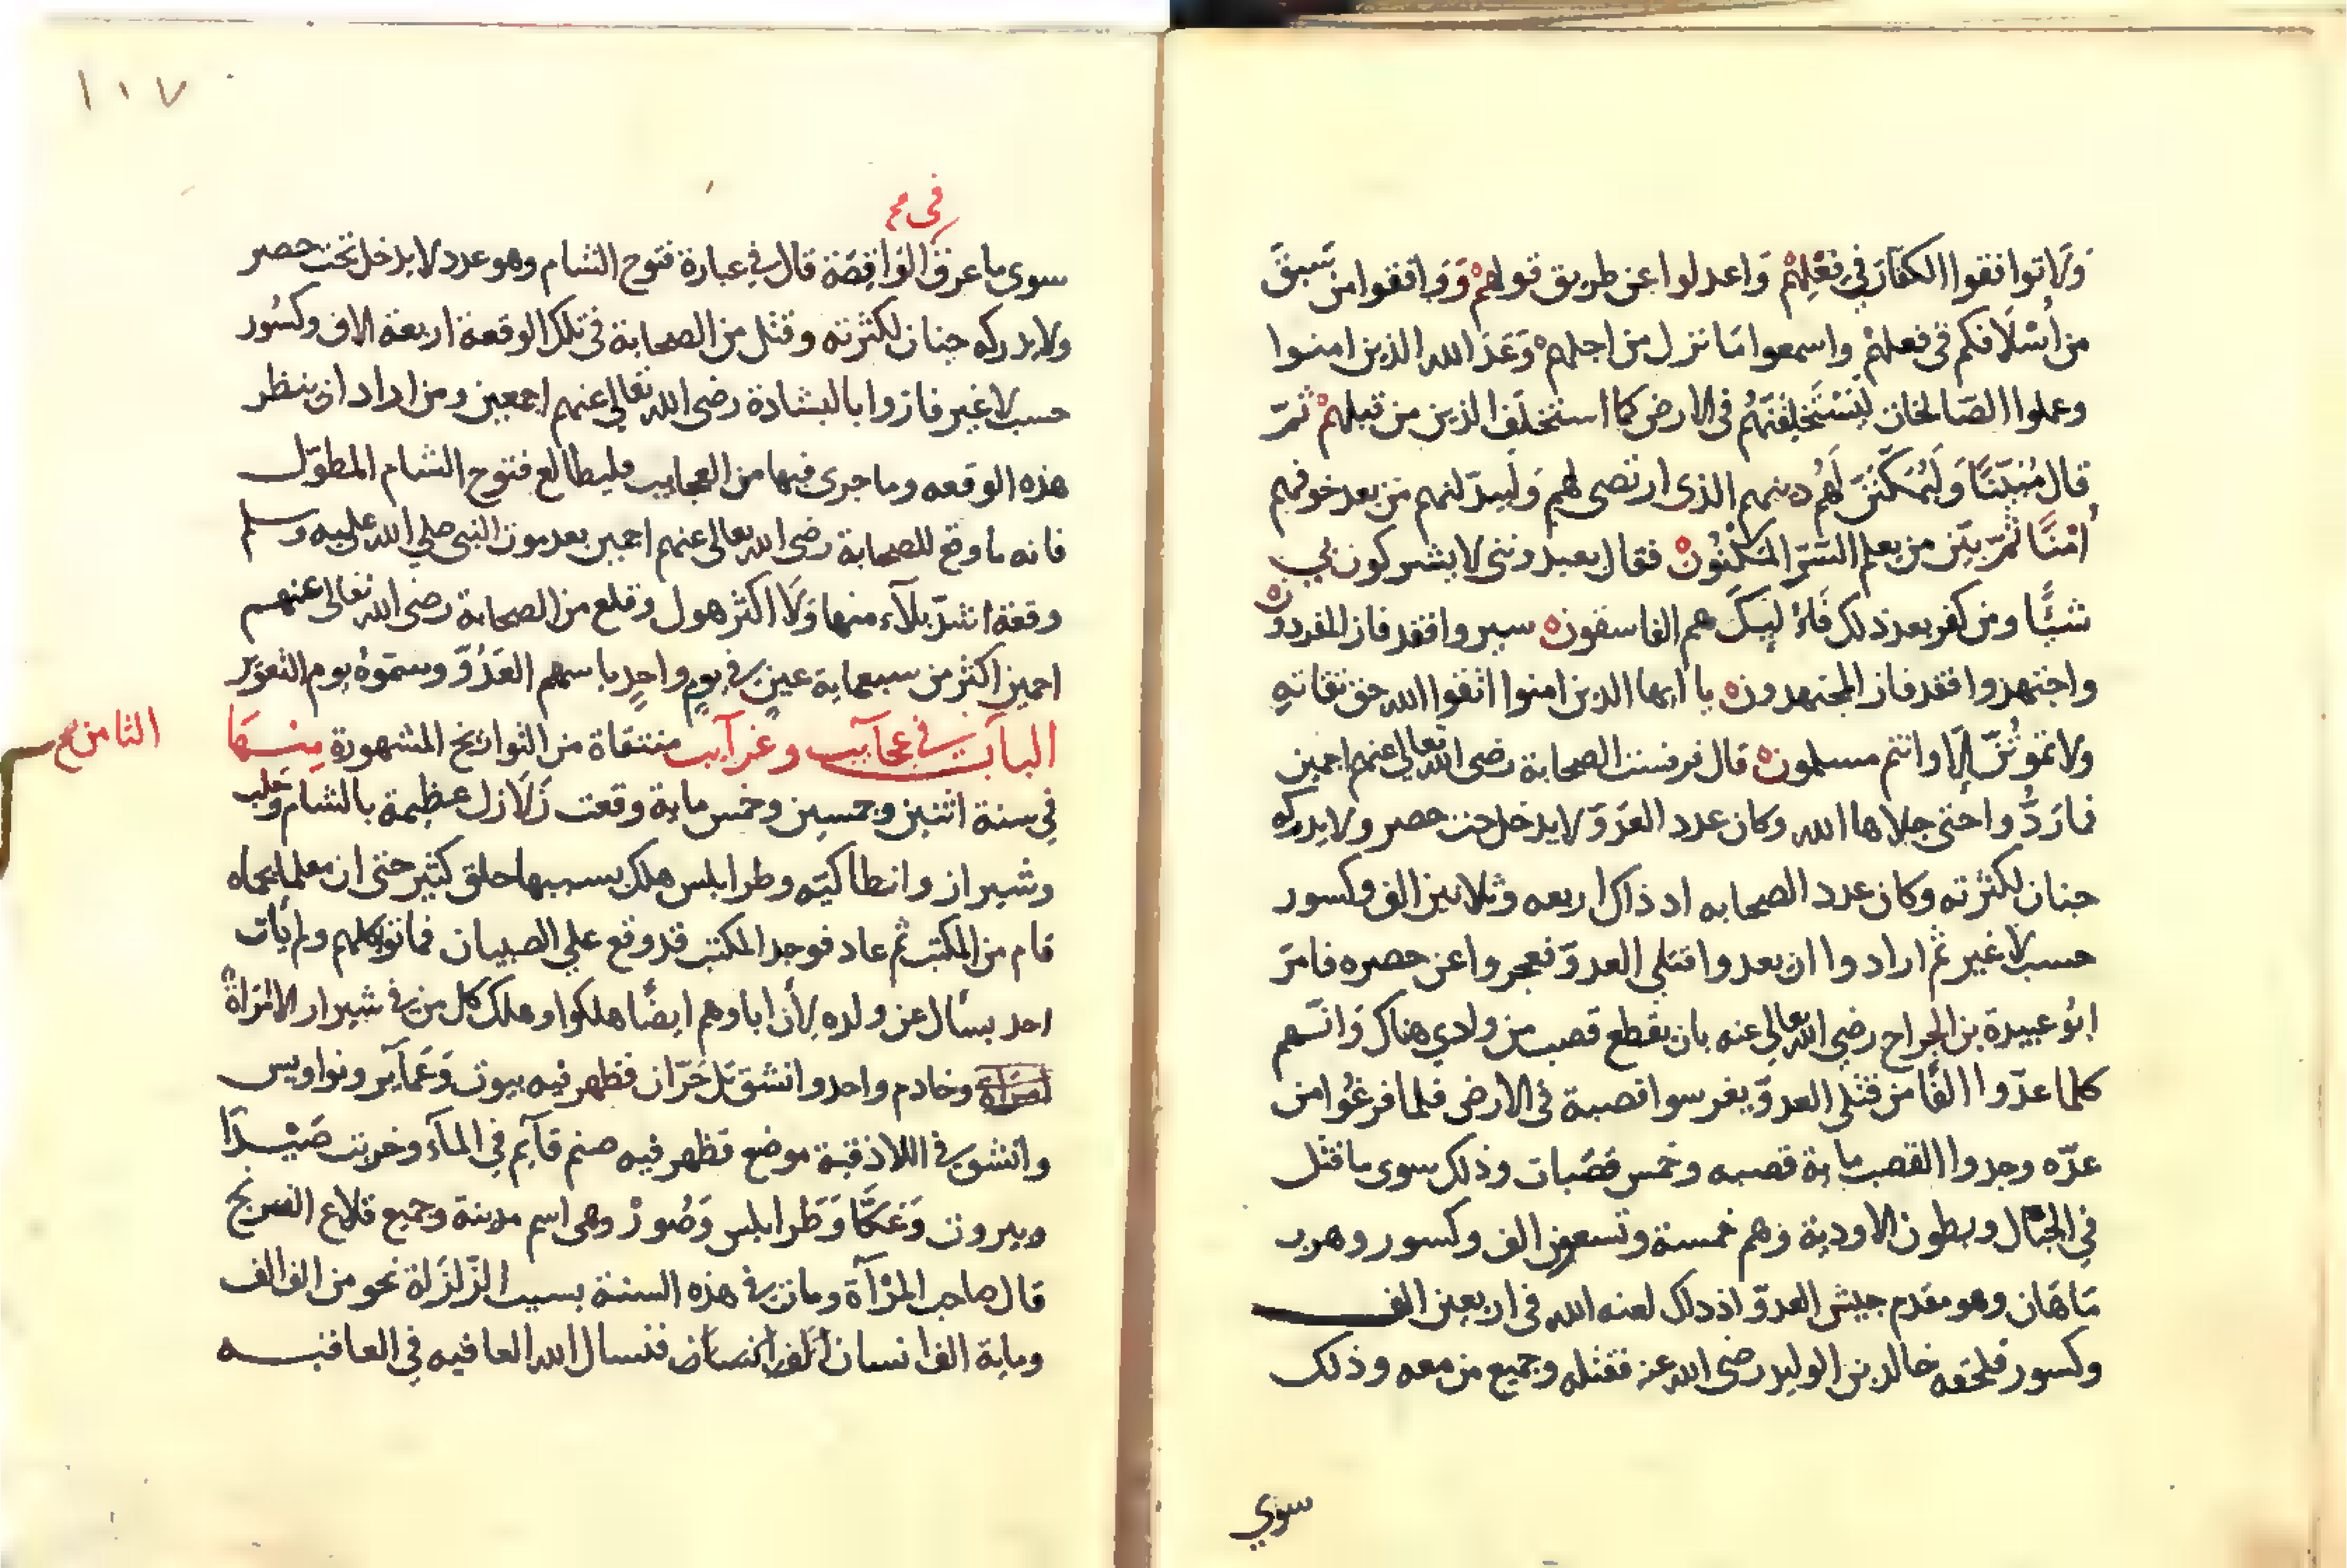 ولا توافقوا الكفار في فعلهم واعدلوا عن طريق قولهم ووافقوا من سبق
من أسلافكم في فعلهم واسمعوا ما نزل من اجلهم وعد الله الذين امنوا
وعملوا الصالحات ليستخلفنهم في الارض كما استخلف الذين من قبلهم ثم
قال وليمكنن لهم دينهم الذي ارتضى لهم وليبدلنهم من بعد خوفهم
أمنا ثم بين من يعلم السر المكنون فقال يعبدونني لا يشركون بي
شيئا ومن كفر بعد ذلك فأوليك هم الفاسقون سيروا فقد فاز المفردون
واجتهدوا فقد فاز المجتهدون يا ايها الذين امنوا اتقوا الله حق تقاته
ولا تموتن إلا وانتم مسلمون قال الصحابة رضي الله تعالى عنهم اجمعين
فما ردوا حتى جلاها الله وكان عدد العدو لا يدخل تحت حصر ولا يدركه
جنان لكثرته وكان عدد الصحابه اد ذاك اربعه وثلاثين الف وكسور
حسب لا غير ثم ارادوا ان يعدوا قتلى العدو فعجروا عن حصره فامر
ابو عبيدة بن الجراح رضي الله تعالى عنه بان يقطع قصب من وادي هناك وانهم
كلما عدوا الفا من قتلى العدو يغرسوا قصبة في الارض فلما فرغوا من
عده وجدوا القصب ماية قصبه وخمس قصبات وذلك سوى ما قتل
في الجبال وبطون الاودية وهم خمسة وتسعين الف وكسور وهرب
ماهان وهو مقدم جيش العدو اذ دلك لعنه الله في اربعين الف
وكسور فلحقه خالد بن الوليد رضي الله عنه فقتله وجميع من معه وذلك
سوي
١٠٧
في
سوى ما غرق الواقصة قال في عبارة فتوح الشام وهو عدد لا يدخل تحت حصر
ولا يدركه جنان لكثرته وقتل من الصحابة في تلك الوقعة اربعة الاف وكسور
حسب لا غير فازوا بالشهادة رضي الله تعالى عنهم اجمعين ومن اراد ان ينظر
هذه الوقعه وما جرى فيها من العجايب فليطالع فتوح الشام المطول
فانه ما وقع للصحابة رضي الله تعالى عنهم اجمعين بعد موت النبي صلي الله عليه وسلم
وقعة اشد بلاء منها ولا اكثر هول وقلع من الصحابة رضي الله تعالى عنهم
اجمعين اكثر من سبعماية عين في يوم واحد باسهم العدو وسموه يوم التعوير
الباب الثامن في عجآيب وغرآيب منتقاة من التواريخ المشهورة منها
في سنة اثنين وخمسين وخمس ماية وقعت زلازل عظيمة بالشام وحلب
وشيراز وانطاكيه وطرابلس هلك بسببها خلق كثير حتى ان معلما بحماه
قام من المكتب ثم عاد فوجد المكتب قد وقع علي الصبيان فماتوا كلهم ولم يأت
احد يسأل عن ولده لأن اباوهم ايضا هلكوا وهلك كل من في شيرار الا امرأة
وخادم واحد وانشق تل حران فظهر فيه بيوت وعمآير ونواويس
وانشق في اللاذقية موضع فظهر فيه صنم قآيم في المآء وخربت صيدا
وبيروت وعكا وطرابلس وصور وهي اسم مدينة وجميع قلاع الفرنج
قال صاحب المرآة ومات في هذه السنة بسبب الزلزلة نحو من الف الف
وماية الف انسان فنسال الله العافيه في العاقبه